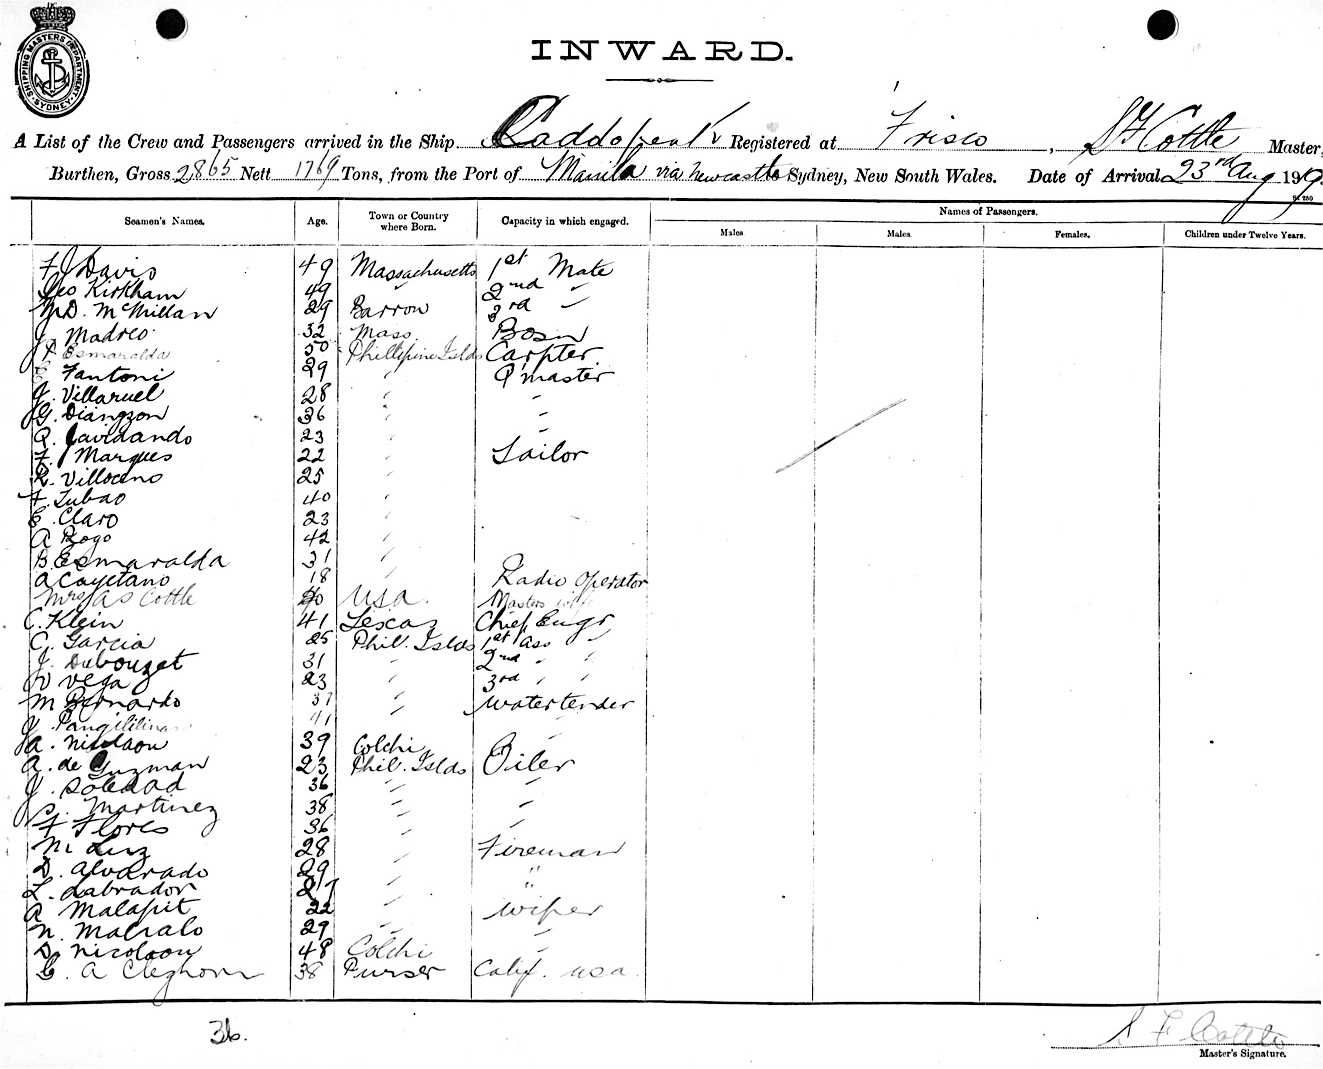 SHIPPING MASTERS DEPARTMENT
SYDNEY
INWARD.
A List of the Crew and Passengers arrived in the Ship Caddopeak Registered at Frisco, S F Cottle Master,
Burthen, Gross 2865 Nett 1769 Tons, from the Port of Manila via Newcastle to Sydney, New South Wales. Date of Arrival 23rd Aug 1919
Seamen's Names. Age. Town or Country where Born. Capacity in which engaged. Names of Passengers.
Males Males. Females. Children under Twelve Years.
F J Davis 49 Massachusetts 1st Mate
Geo Kirkham 49 " 2nd "
N D. McMillan 29 Barron 3rd "
J. Madreo 32 Mass Bosn
P. Esmaralda 50 Phillipine Islds Carpter
Fantoni 29 " Q'master
J. Villaruel 28 " "
G. Diangzon 36 " "
R. Javidando 23 " "
F. Marques 22 " Sailor
R. Villocino 25 "
F. Tubao 40 "
E. Claro 23 "
A Bogo 42 "
B. Esmaralda 31 "
A Cayetano 18 " Radio Operator
Mrs A S Cottle 40 USA. Masters wife
C. Klein 41 Chief Engr
C. Garcia 25 Phil. Islds 1st Ass "
J. Dubouzet 31 " 2nd " "
V Vega 23 " 3rd " "
M Bernardo 37 " Watertender
J. Pangilinan 41 " "
A. Nicolaou 39 Colchi "
A. de Guzman 23 Phil. Islds Oiler
J. Soledad 36 " "
S. Martinez 38 " "
F Flores 36 " "
M Luz 28 " Fireman
D. Alvarado 29 " "
L. Labrador 27 " "
A Malapit 22 " Wiper
N. Macralo 29 " "
D. Nicolaou 48 Colchi "
C. A Cleghorn 38 Purser Calif. USA.
36.
S F Cottle
Master's Signature.